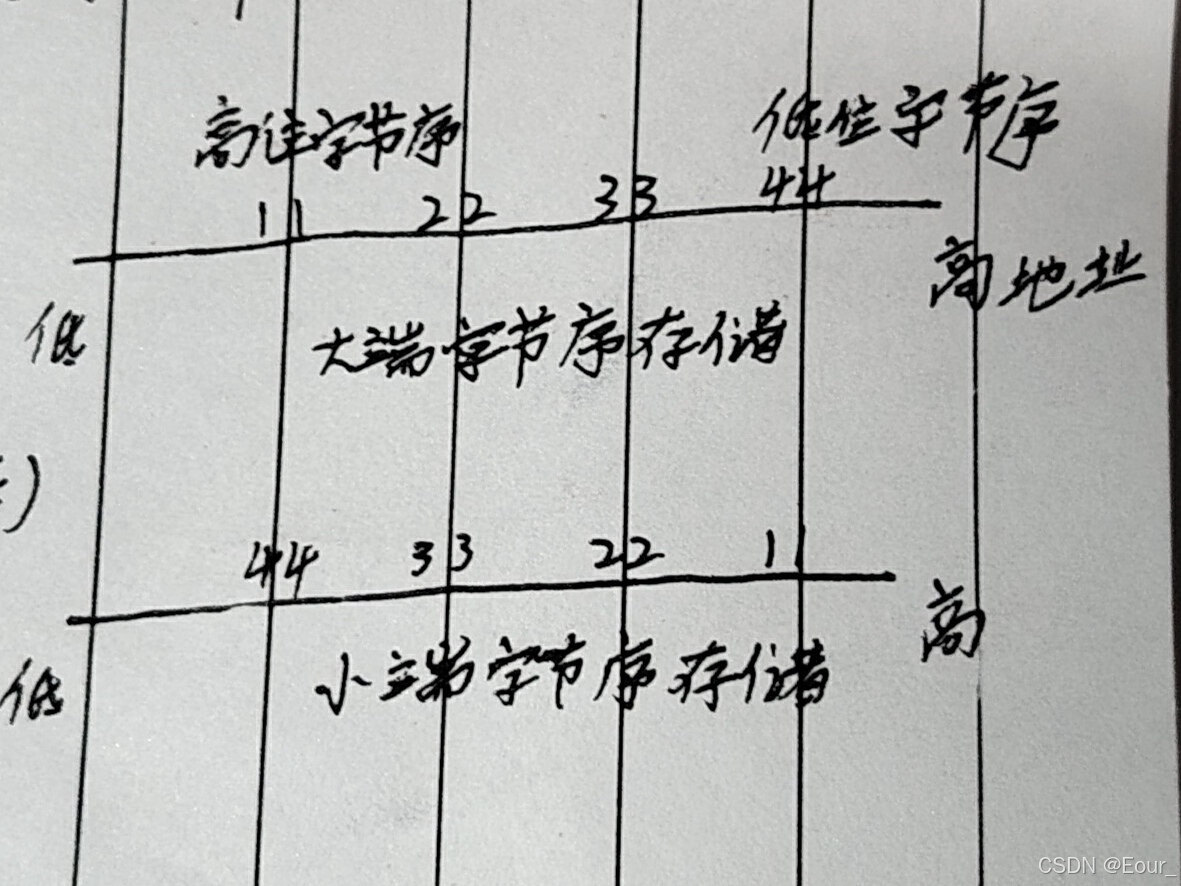 高位字节序 低位字节序
11 22 33 44
低 高地址
大端字节序存储
)
44 33 22 11
低 高
小端字节序存储
CSDN @Eour_